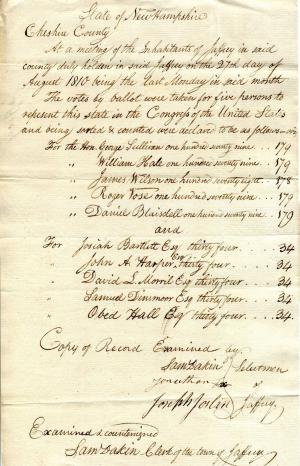 State of New Hampshire
Cheshire County
At a meeting of the Inhabitants of Jaffrey in said
county duly holden in said Jaffrey on the 27th day of
August 1810 being the last Monday in said month
The votes by ballot were taken for five persons to
represent this state in the Congress of the United States
and being sorted & counted were declared to be as follows viz
For the Hon. George Sullivan one hundred seventy nine 179
" William Hale one hundred seventy nine 179
" James Wilson one hundred seventy eight 178
" Roger Vose one hundred seventy nine 179
" Daniel Blaisdell one hundred seventy nine 179
and
For Josiah Bartlett Esq thirty four 34
" John A Harper Esq thirty four 34
" David L Morril Esq thirty four 34
" Samuel Dinsmoor Esq thirty four 34
" Obed Hall Esq thirty four 34
Copy of Record Examined by
Saml Dakin Selectmen
Jonathan of
Joseph Joslin Jaffrey
Examined & countersigned
Saml Dakin Clerk of the town of Jaffrey